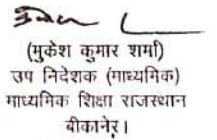 (मुकेश कुमार शर्मा)
उप निदेशक (माध्यमिक)
माध्यमिक शिक्षा राजस्थान
बीकानेर।